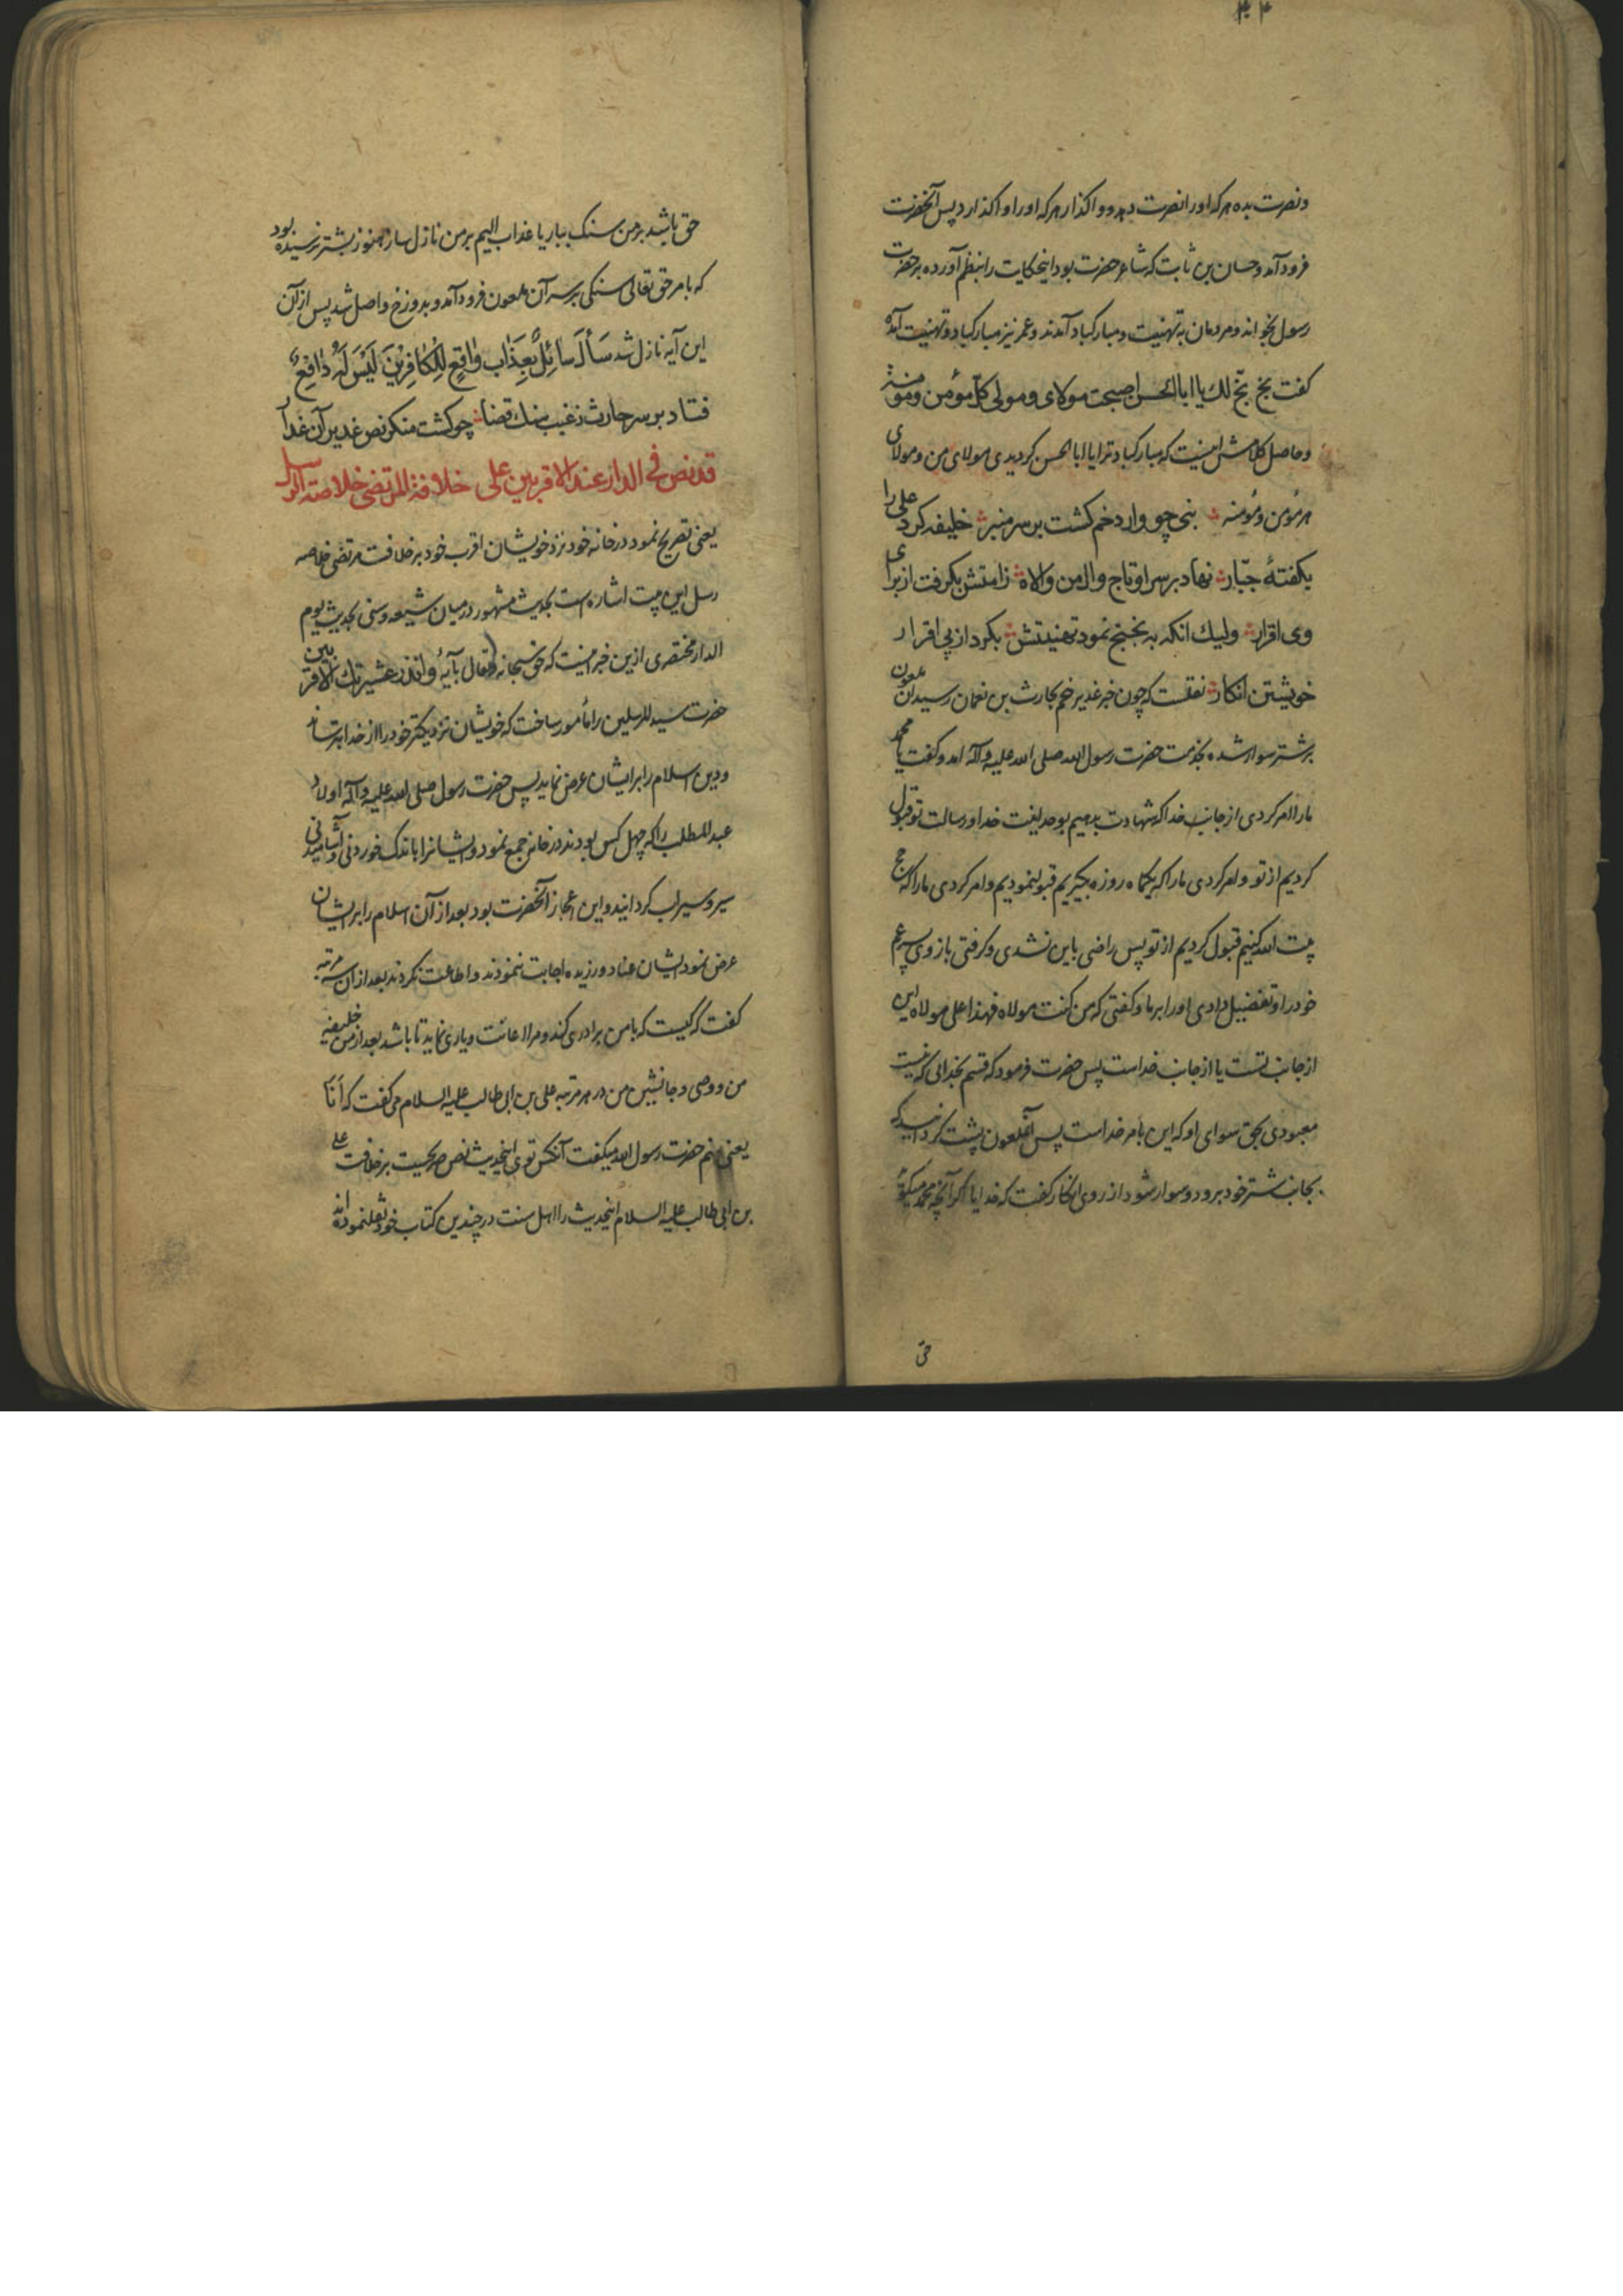 ۴۴
و نصرت بده هر که او را نصرت دهد و واگذار هر که او را واگذارد پس آنحضرت
فرود آمد و حسان بن ثابت که شاعر حضرت بود اینحکایت را بنظم آورده بر حضرت
رسول بخواند و مردمان به تهنیت و مبارکباد آمدند و عمر نیز مبارکباد و تهنیت آمده
کفت بخ بخ لك یا ابا الحسن اصبحت مولای و مولی کل مؤمن و مؤمنة
و حاصل کلامش اینست که مبارکباد ترا یا ابا الحسن کردیدی مولای من و مولای
هر مؤمن و مؤمنه نبی چو وارد خم کشت بر سر منبر خلیفه کرد علی را
بکفتهٔ جبّار نهاد بر سر او تاج وال من والاه ز امتش بکرفت از برای
وی اقرار ولیك انکه به بخبخ نمود تهنیتش بکرد از پی اقرار
خویشتن انکار نقلست که چون خبر غدیر خم بحارث بن نعمان رسید ان ملعون
بر شتر سوار شده بخدمت حضرت رسول الله صلی الله علیه و آله امد و کفت یا محمد
ما را امر کردی از جانب خدا که شهادت بدهیم بوحدانیت خدا و رسالت تو قبول
کردیم از تو و امر کردی ما را که یکماه روزه بکیریم قبول نمودیم و امر کردی ما را که حج
بیت الله کنیم قبول کردیم از تو پس راضی باین نشدی و کرفتی بازوی پسر عم
خود را و تفضیل دادی او را بر ما و کفتی که من کنت مولاه فهذا علی مولاه این
از جانب تست یا از جانب خداست پس حضرت فرمود که قسم بخدائی که نیست
معبودی بحق سوای او که این بامر خداست پس آنملعون پشت کردانید که
بجانب شتر خود برود و سوار شود از روی انکار کفت که خدایا اکر آنچه محمد میکوید
حق
حق باشد بر من سنك ببار یا عذاب الیم بر من نازل ساز هنوز بشتر نرسیده بود
که بامر حق تعالی سنکی بر سر آن ملعون فرود آمد و بدوزخ واصل شد پس از آن
این آیه نازل شد سَأَلَ سائِلٌ بِعَذابٍ واقِعٍ لِلْکافِرینَ لَیْسَ لَهُ دافِعٌ
فتاد بر سر حارث ز غیب سنك قضا چو کشت منکر نص غدیر آن غدار
قد نص فی الدار عند الاقربین علی خلافة المرتضی خلاصة الرسل
یعنی تصریح نمود در خانه خود نزد خویشان اقرب خود بر خلافت مرتضی خلاصه
رسل این بیت اشاره است بحدیث مشهور در میان شیعه و سنی بحدیث یوم
الدار مختصری ازین خبر اینست که حق سبحانه و تعالی بآیهٔ وانذر عشیرتك الاقربین
حضرت سید المرسلین را مأمور ساخت که خویشان نزدیکتر خود را از خدا بترساند
و دین اسلام را بر ایشان عرض نماید پس حضرت رسول صلی الله علیه و آله اولاد
عبد المطلب را که چهل کس بودند در خانه جمع نمود و ایشانرا باندك خوردنی و آشامیدنی
سیر و سیراب کردانید و این اعجاز آنحضرت بود بعد از آن اسلام را بر ایشان
عرض نمود ایشان عناد ورزیده اجابت ننمودند و اطاعت نکردند بعد از ان سه مرتبه
کفت که کیست که با من برادری کند و مرا اعانت و یاری نماید تا باشد بعد از من خلیفه
من و وصی و جانشین من در هر مرتبه علی بن ابی طالب علیه السلام می کفت که اَنَا
یعنی منم حضرت رسول الله میکفت آنکس توی اینحدیث نص صریحست بر خلافت علی
بن ابی طالب علیه السلام اینحدیث را اهل سنت در چندین کتاب خود نقل نموده‌اند